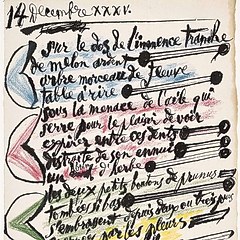 14 Decembre XXXV.
sur le dos de l'immence tranche
de melon ardent
arbre morceau de fleuve
table d'rire
sous la menace de l'aile qui
serre pour le plaisir de voir
expirer entre ces dents
distraite de son ennui
un brin d'herbe
les deux petits boutons de prunus
tombés si bas
s'embrassent depuis deux ou trois jours
par les pleurs